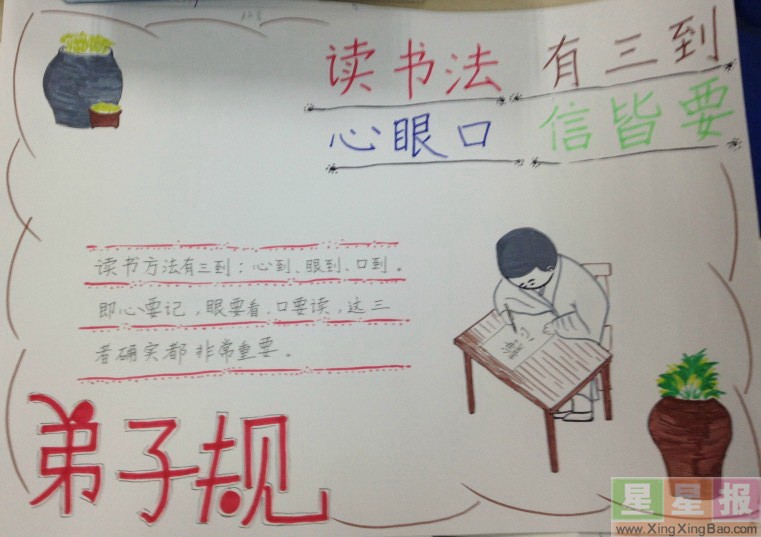 读书法 有三到
心眼口 信皆要
读书方法有三到：心到、眼到、口到。
即心要记，眼要看，口要读，这三
者确实都非常重要。
弟子规
星星报
www.XingXingBao.com